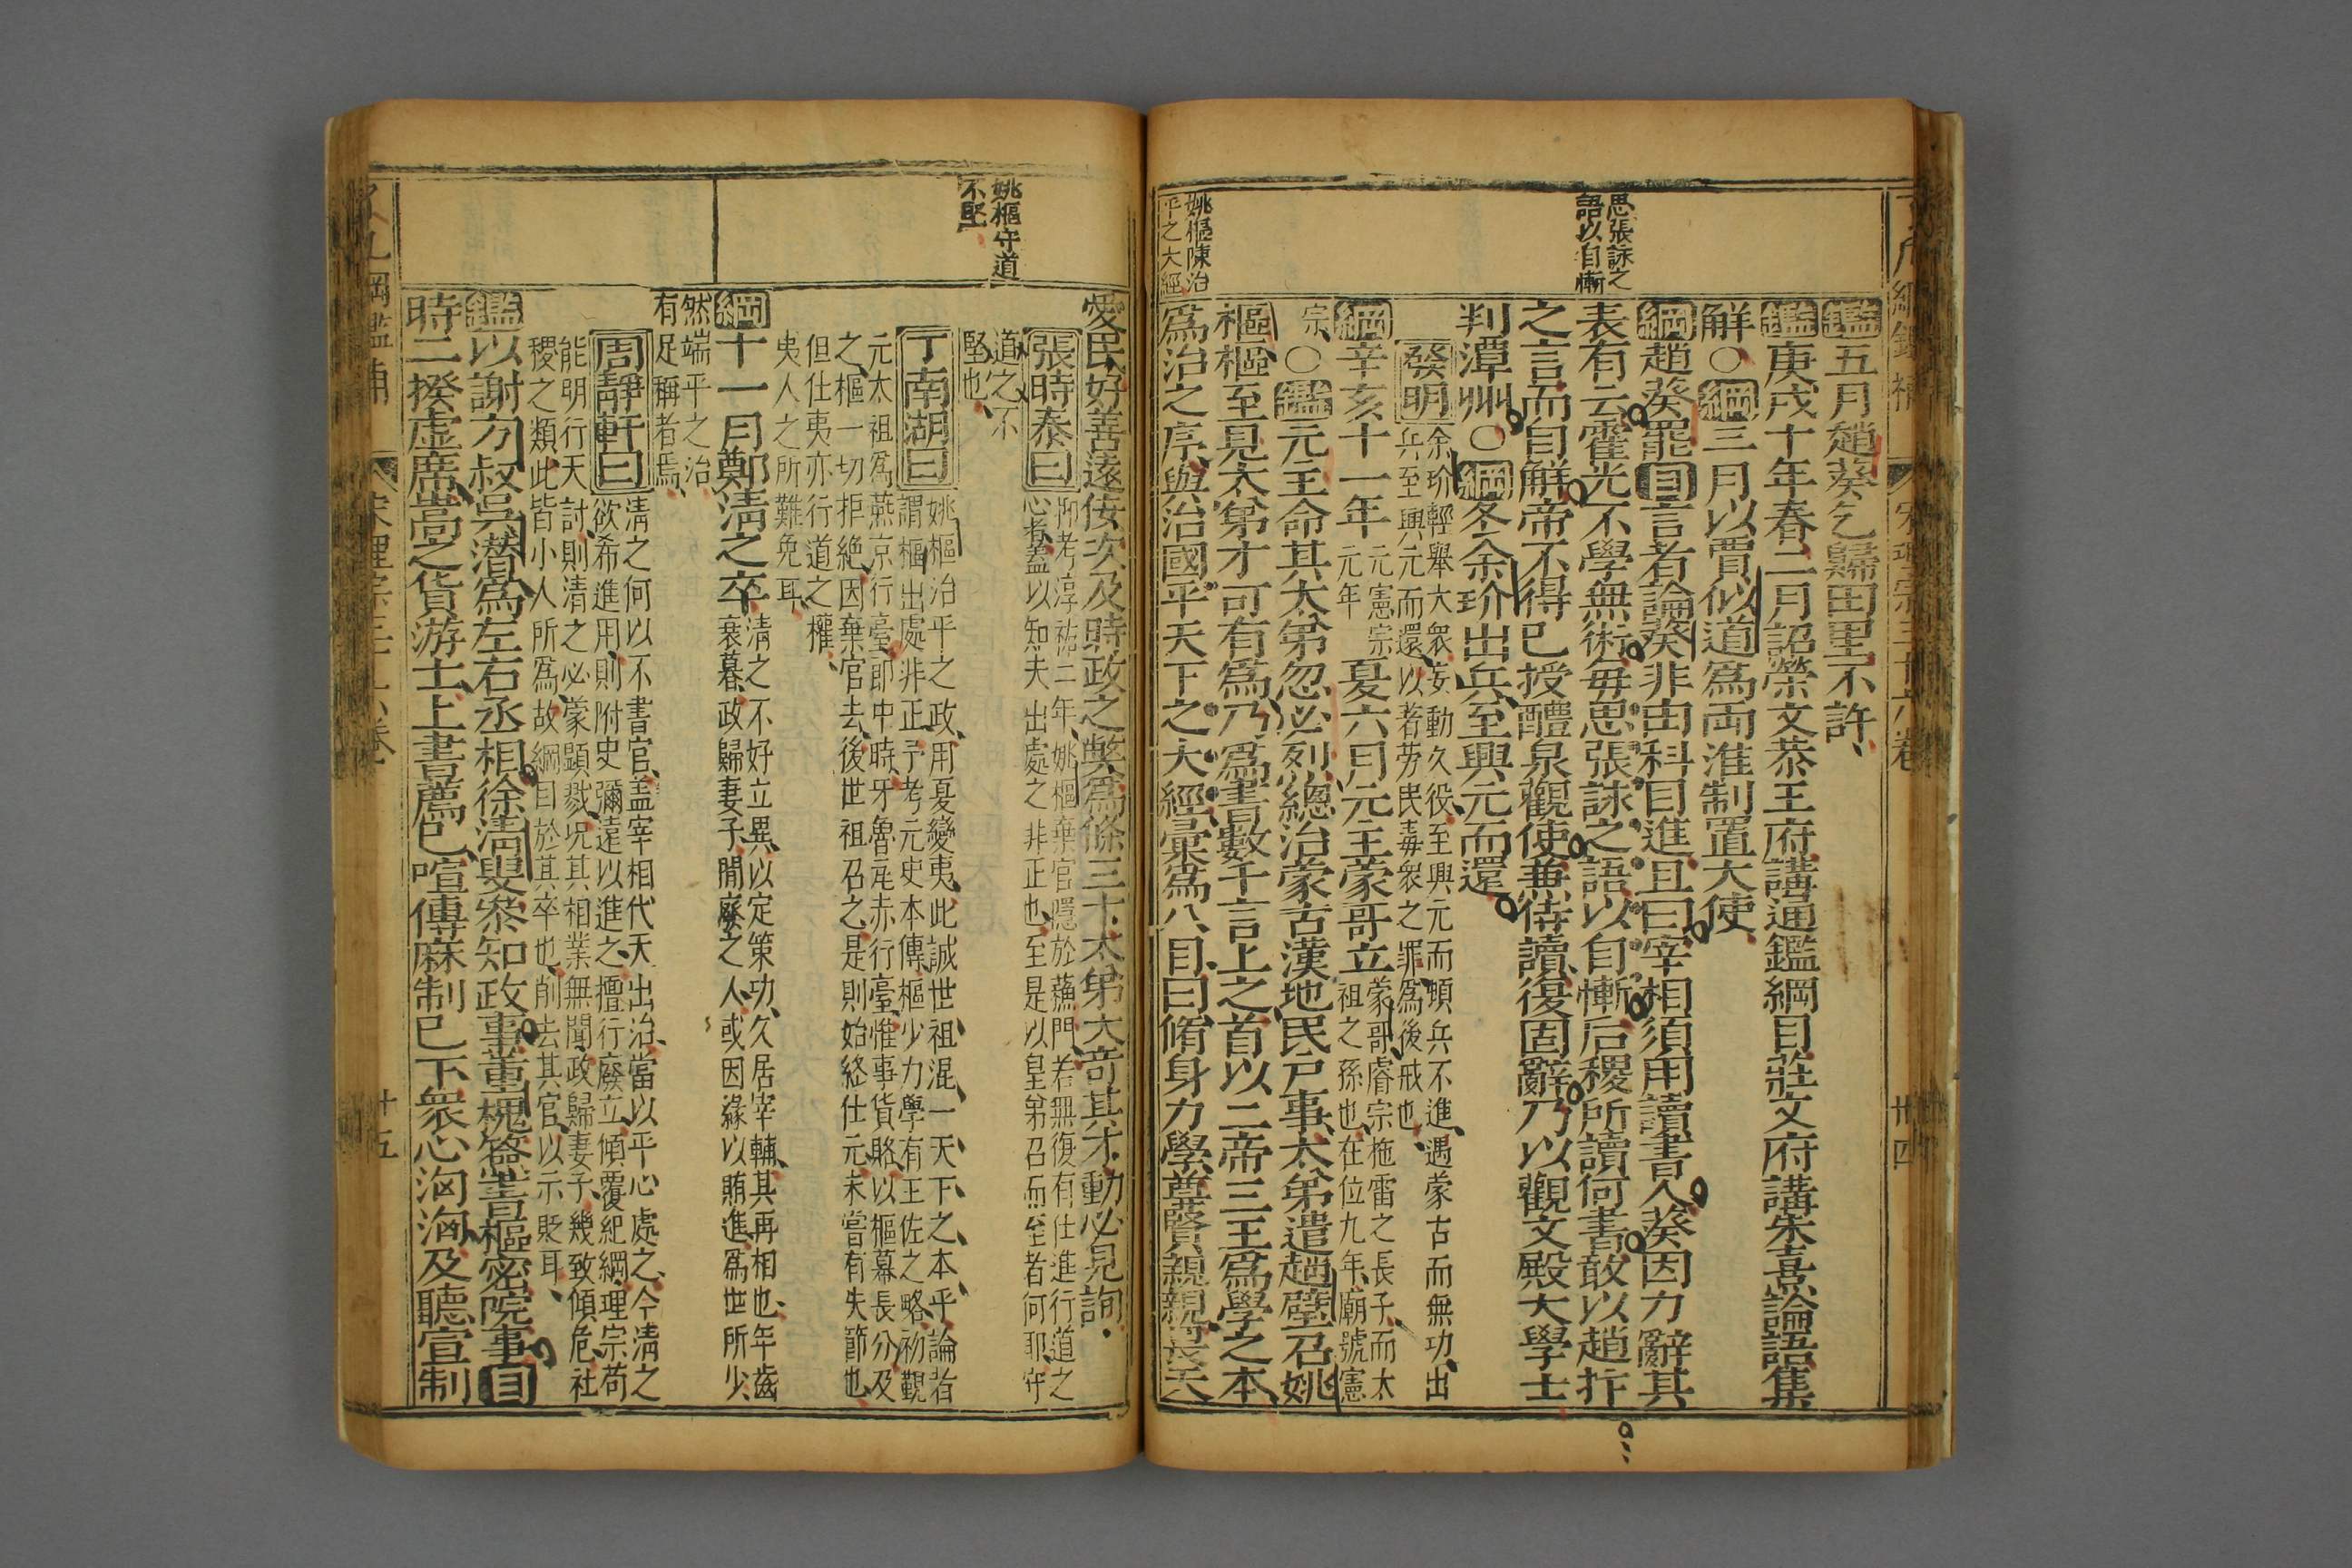 思張詠之
語以自慚
姚樞陳治
平之大經
鑑五月趙葵乞歸田里不許
鑑庚戌十年春二月詔榮文恭王府講通鑑綱目莊文府講朱熹論語集
解○綱三月以賈似道為兩淮制置大使
綱趙葵罷目言者論葵非由科目進且曰宰相須用讀書人葵因力辭其
表有云霍光不學無術每思張詠之語以自慚后稷所讀何書敢以趙抃
之言而自解帝不得已授醴泉觀使兼侍讀復固辭乃以觀文殿大學士
判潭州○綱冬余玠出兵至興元而還
發明余玠輕舉大衆妄動久役至興元而頓兵不進遇蒙古而無功出
兵至興元而還以著勞民毒衆之罪為後戒也
綱辛亥十一年元憲宗元年夏六月元主蒙哥立蒙哥睿宗拖雷之長子而太
祖之孫也在位九年廟號憲
宗○鑑元主命其太弟忽必列總治蒙古漢地民戶事太弟遣趙璧召姚
樞樞至見太弟才可有為乃為書數千言上之首以二帝三王為學之本
為治之序與治國平天下之大經彙為八目曰脩身力學尊賢親親畏天
卅四
姚樞守道
不堅
愛民好善遠佞次及時政之弊為條三十太弟大奇其才動必見詢
張時泰曰抑考淳祐二年姚樞棄官隱於蘇門若無復有仕進行道之
心者蓋以知夫出處之非正也至是以皇弟召而至者何耶守
道之不
堅也
丁南湖曰姚樞治平之政用夏變夷此誠世祖混一天下之本平論者
謂樞出處非正予考元史本傳樞少力學有王佐之略初觀
元太祖為燕京行臺郎中時牙魯瓦赤行臺惟事貨賂以樞幕長分及
之樞一切拒絕因棄官去後世祖召之是則始終仕元未嘗有失節也
但仕夷亦行道之權
夷人之所難免耳
綱十一月鄭清之卒清之不好立異以定策功久居宰輔其再相也年齒
衰暮政歸妻子閒廢之人或因緣以賄進為世所少
然端平之治
有足稱者焉
周靜軒曰清之何以不書官蓋宰相代天出治當以平心處之今清之
欲希進用則附史彌遠以進之擅行廢立傾覆紀綱理宗苟
能明行天討則清之必蒙顯戮況其相業無聞政歸妻子幾致傾危社
稷之類此皆小人所為故綱目於其卒也削去其官以示貶耳
鑑以謝方叔吳潛為左右丞相徐清叟參知政事董槐簽書樞密院事目
時二揆虛席嵩之貨游士上書薦巳喧傳麻制已下衆心洶洶及聽宣制
十五